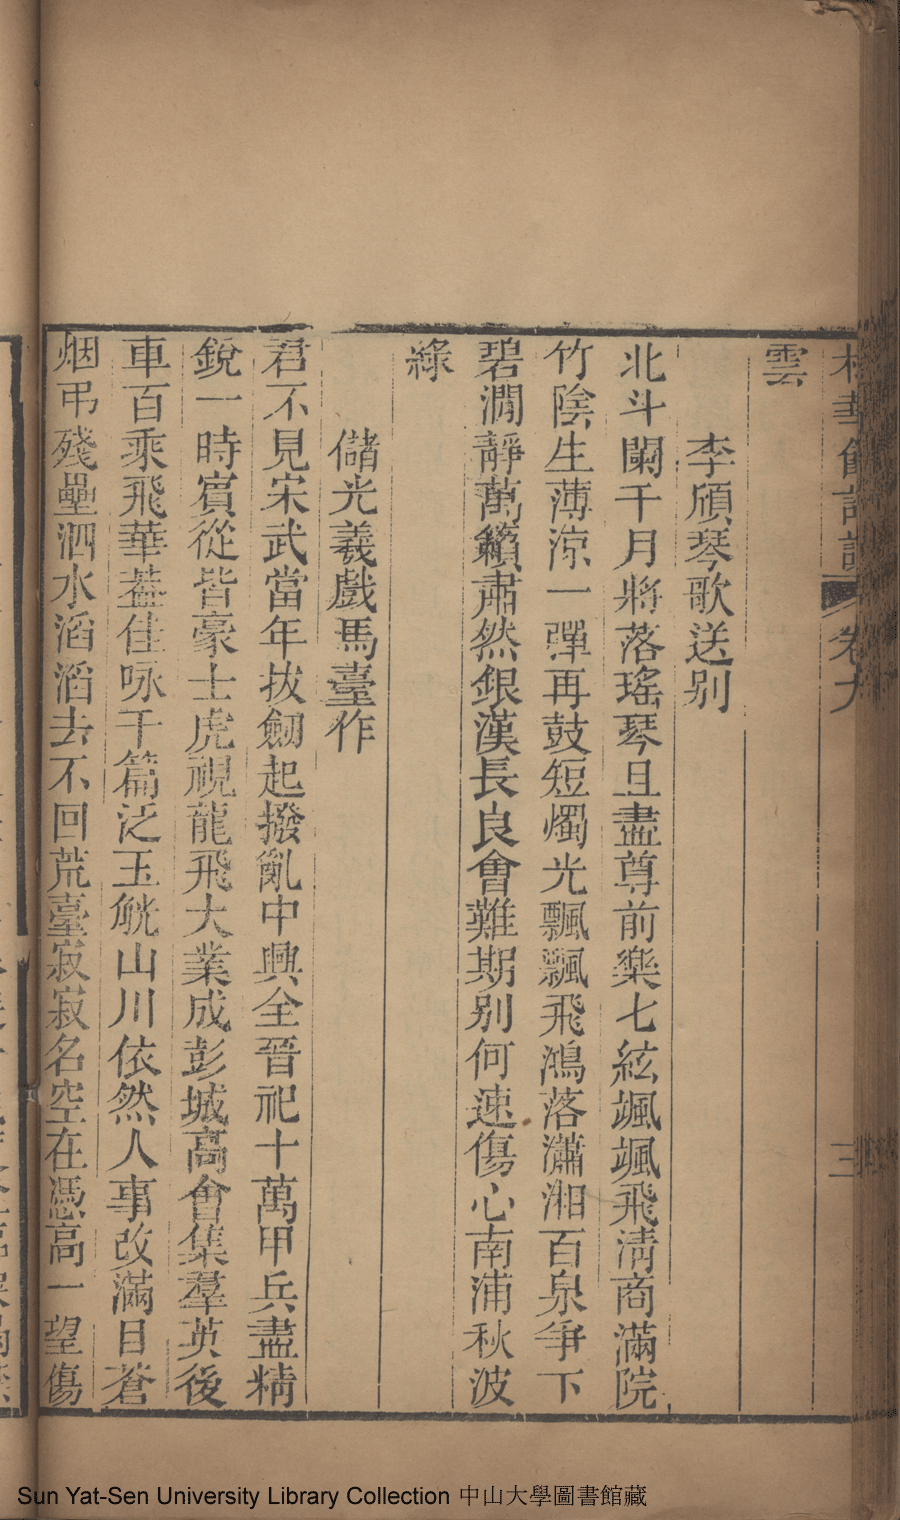 雲
李頎琴歌送别
北斗闌干月將落瑤琴且盡尊前樂七絃颯颯飛淸商滿院
竹陰生薄涼一彈再鼓短燭光飄飄飛鴻落瀟湘百泉爭下
碧澗靜萬籟肅然銀漢長良會難期别何速傷心南浦秋波
綠
儲光羲戲馬臺作
君不見宋武當年拔劒起撥亂中興全晉祀十萬甲兵盡精
銳一時賓從皆豪士虎視龍飛大業成彭城高會集羣英後
車百乘飛華葢佳咏千篇泛玉觥山川依然人事改滿目蒼
烟弔殘壘泗水滔滔去不回荒臺寂寂名空在憑高一望傷
Sun Yat-Sen University Library Collection 中山大學圖書館藏